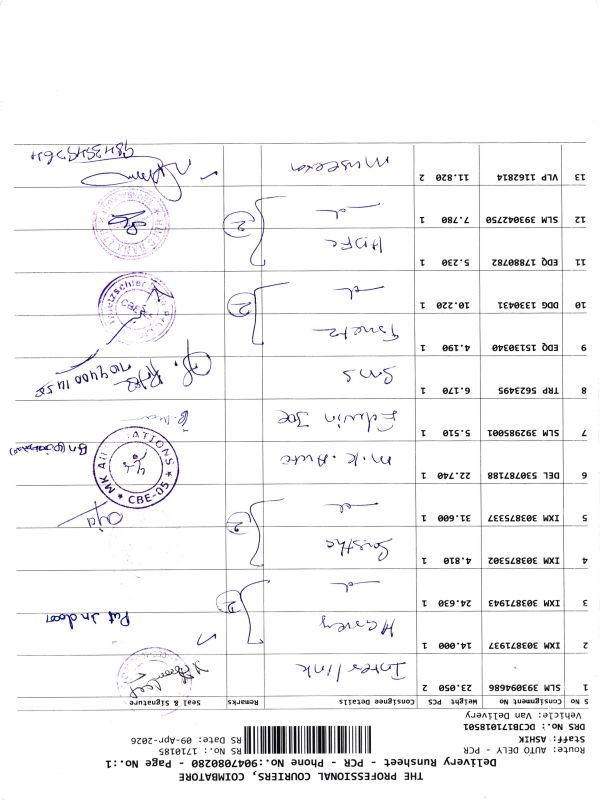 THE PROFESSIONAL COURIERS, COIMBATORE
Delivery Runsheet - PCR - Phone No.:9047080280 - Page No.:1
Route: AUTO DELY - PCR
Staff: ASHIK
DRS No.: DCJB17101B501
Vehicle: Van Delivery
RS No.: 1710185
RS Date: 09-Apr-2026
S No Consignment No Weight PCS Consignee Details Remarks Seal & Signature
1 SLM 393094686 23.050 2 Interlink
2 IXM 303871937 14.000 1 Harvey
3 IXM 303871943 24.630 1 2 Put In door
4 IXM 303875302 4.810 1
5 IXM 303875337 31.600 1 2
6 DEL 530787188 22.740 1 M.K. Auto
MK AU ATIONS
CBE-05
7 SLM 392985001 5.510 1 Edwin Joe
8 TRP 5623495 6.170 1 SMS
9 EDQ 15130340 4.190 1
10 DDG 1330431 10.220 1 2
CBE
11 EDQ 17880782 5.230 1 HDFC
12 SLM 393042750 7.780 1 2
13 VLP 1162814 11.820 2